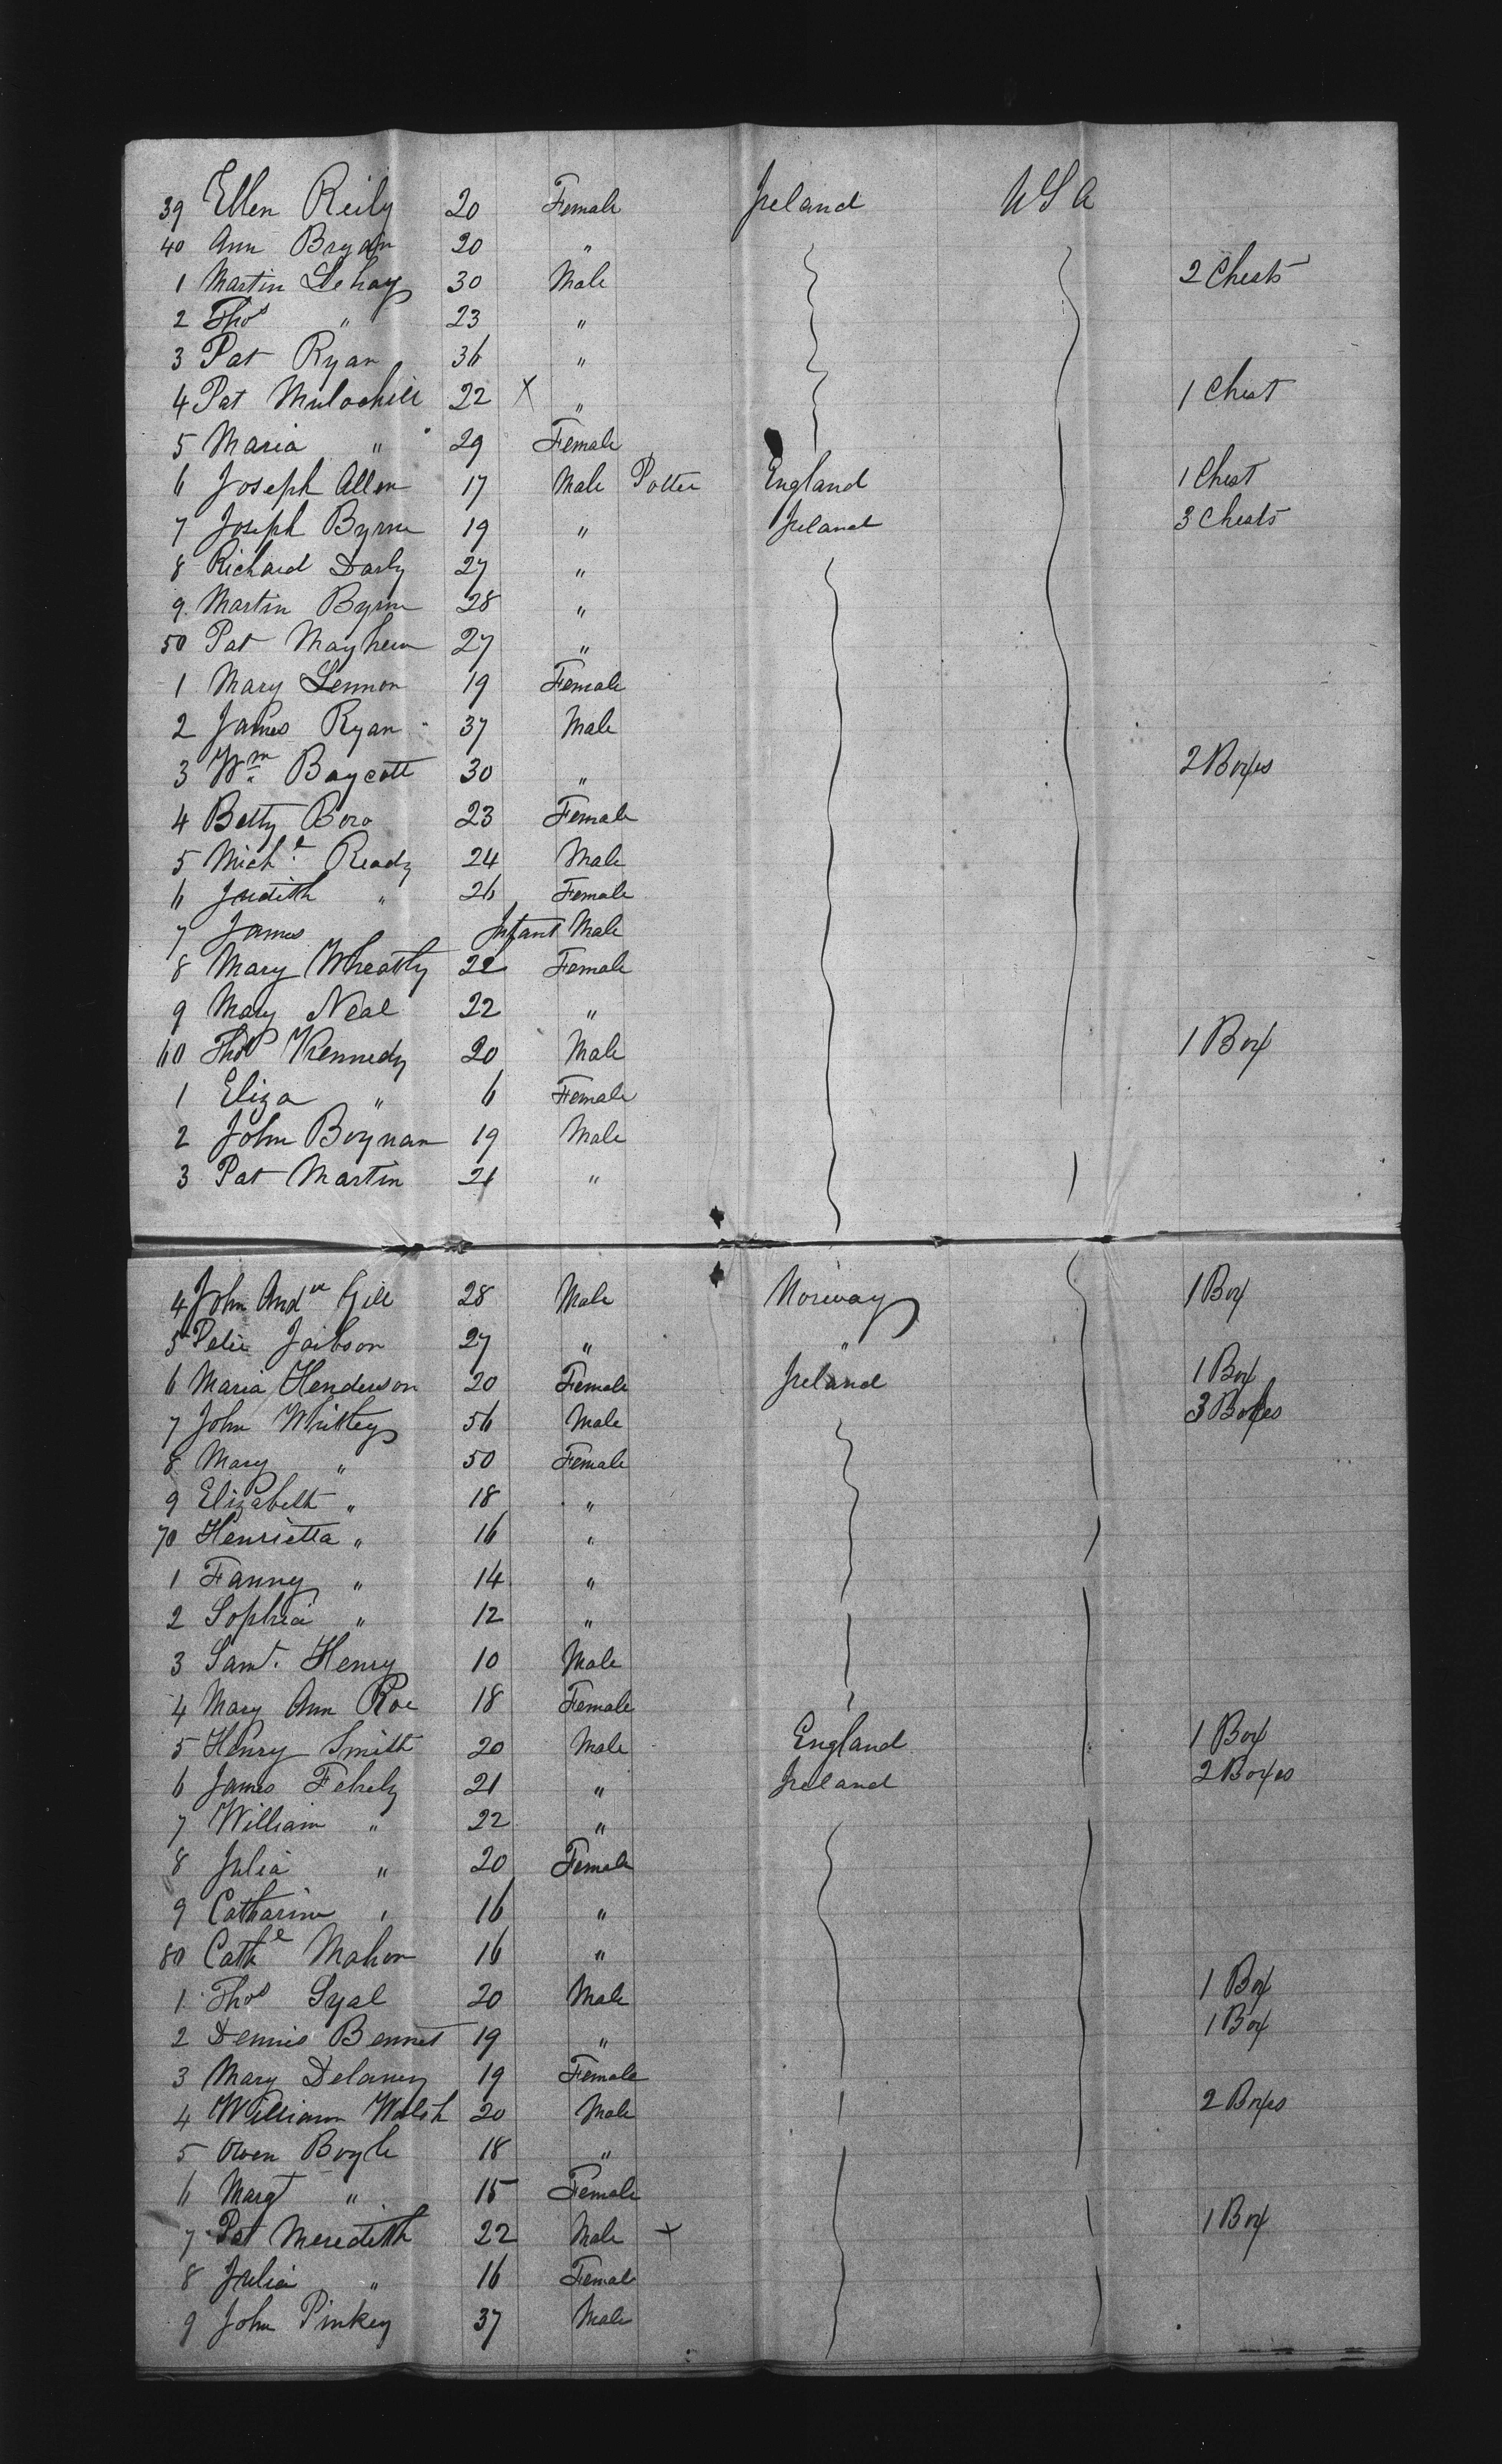 39 Ellen Reily 20 Female Ireland USA
40 Ann Bryan 20 "
1 Martin Lehay 30 Male 2 Chests
2 Thos " 23 "
3 Pat Ryan 36 "
4 Pat Mulochill 22 X " 1 Chest
5 Maria " 29 Female
6 Joseph Allen 17 Male Potter England 1 Chest
7 Joseph Byrne 19 " Ireland 3 Chests
8 Richard Darly 27 "
9 Martin Byrne 28 "
50 Pat Mayhew 27 "
1 Mary Lennon 19 Female
2 James Ryan 37 Male
3 Wm Baycott 30 " 2 Boxes
4 Betty Boro 23 Female
5 Michl Ready 24 Male
6 Judith " 26 Female
7 James Infant Male
8 Mary Wheatly 22 Female
9 Mary Neal 22 "
60 Thos Kennedy 20 Male 1 Box
1 Eliza " 6 Female
2 John Boynan 19 Male
3 Pat Martin 21 "
4 John Andw Gill 28 Male Norway 1 Box
5 Peter Jaibson 27 " "
6 Maria Henderson 20 Female Ireland 1 Box
7 John Whittey 56 Male 3 Boxes
8 Mary " 50 Female
9 Elizabeth " 18 "
70 Henrietta " 16 "
1 Fanny " 14 "
2 Sophia " 12 "
3 Saml. Henry 10 Male
4 Mary Ann Roe 18 Female
5 Henry Smith 20 Male England 1 Box
6 James Fehely 21 " Ireland 2 Boxes
7 William " 22 "
8 Julia " 20 Female
9 Catharine " 16 "
80 Cathe Mahon 16 "
1 Thos Lyal 20 Male 1 Box
2 Dennis Bennet 19 " 1 Box
3 Mary Delaney 19 Female
4 William Walsh 20 Male 2 Boxes
5 Owen Boyle 18 "
6 Margt " 15 Female
7 Pat Meredith 22 Male + 1 Box
8 Julia " 16 Female
9 John Pinkey 37 Male